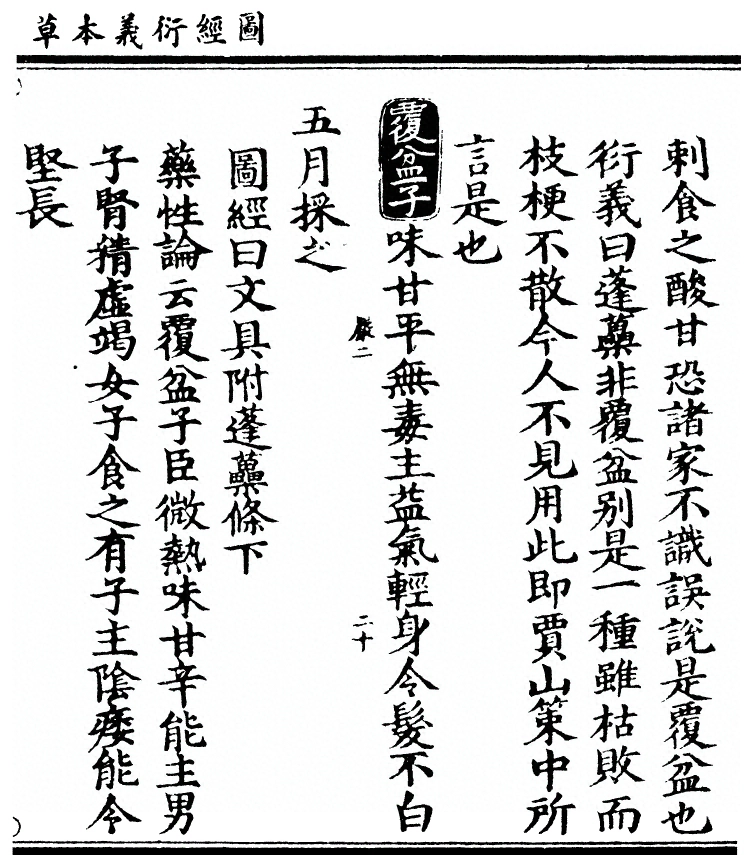 圖經衍義本草
刺食之酸甘恐諸家不識誤說是覆盆也
衍義曰蓬蘽非覆盆別是一種雖枯敗而
枝梗不散今人不見用此即賈山策中所
言是也
覆盆子味甘平無毒主益氣輕身令髮不白
五月採之
圖經曰文具附蓬蘽條下
藥性論云覆盆子臣微熱味甘辛能主男
子腎精虛竭女子食之有子主陰痿能令
堅長
二
二十